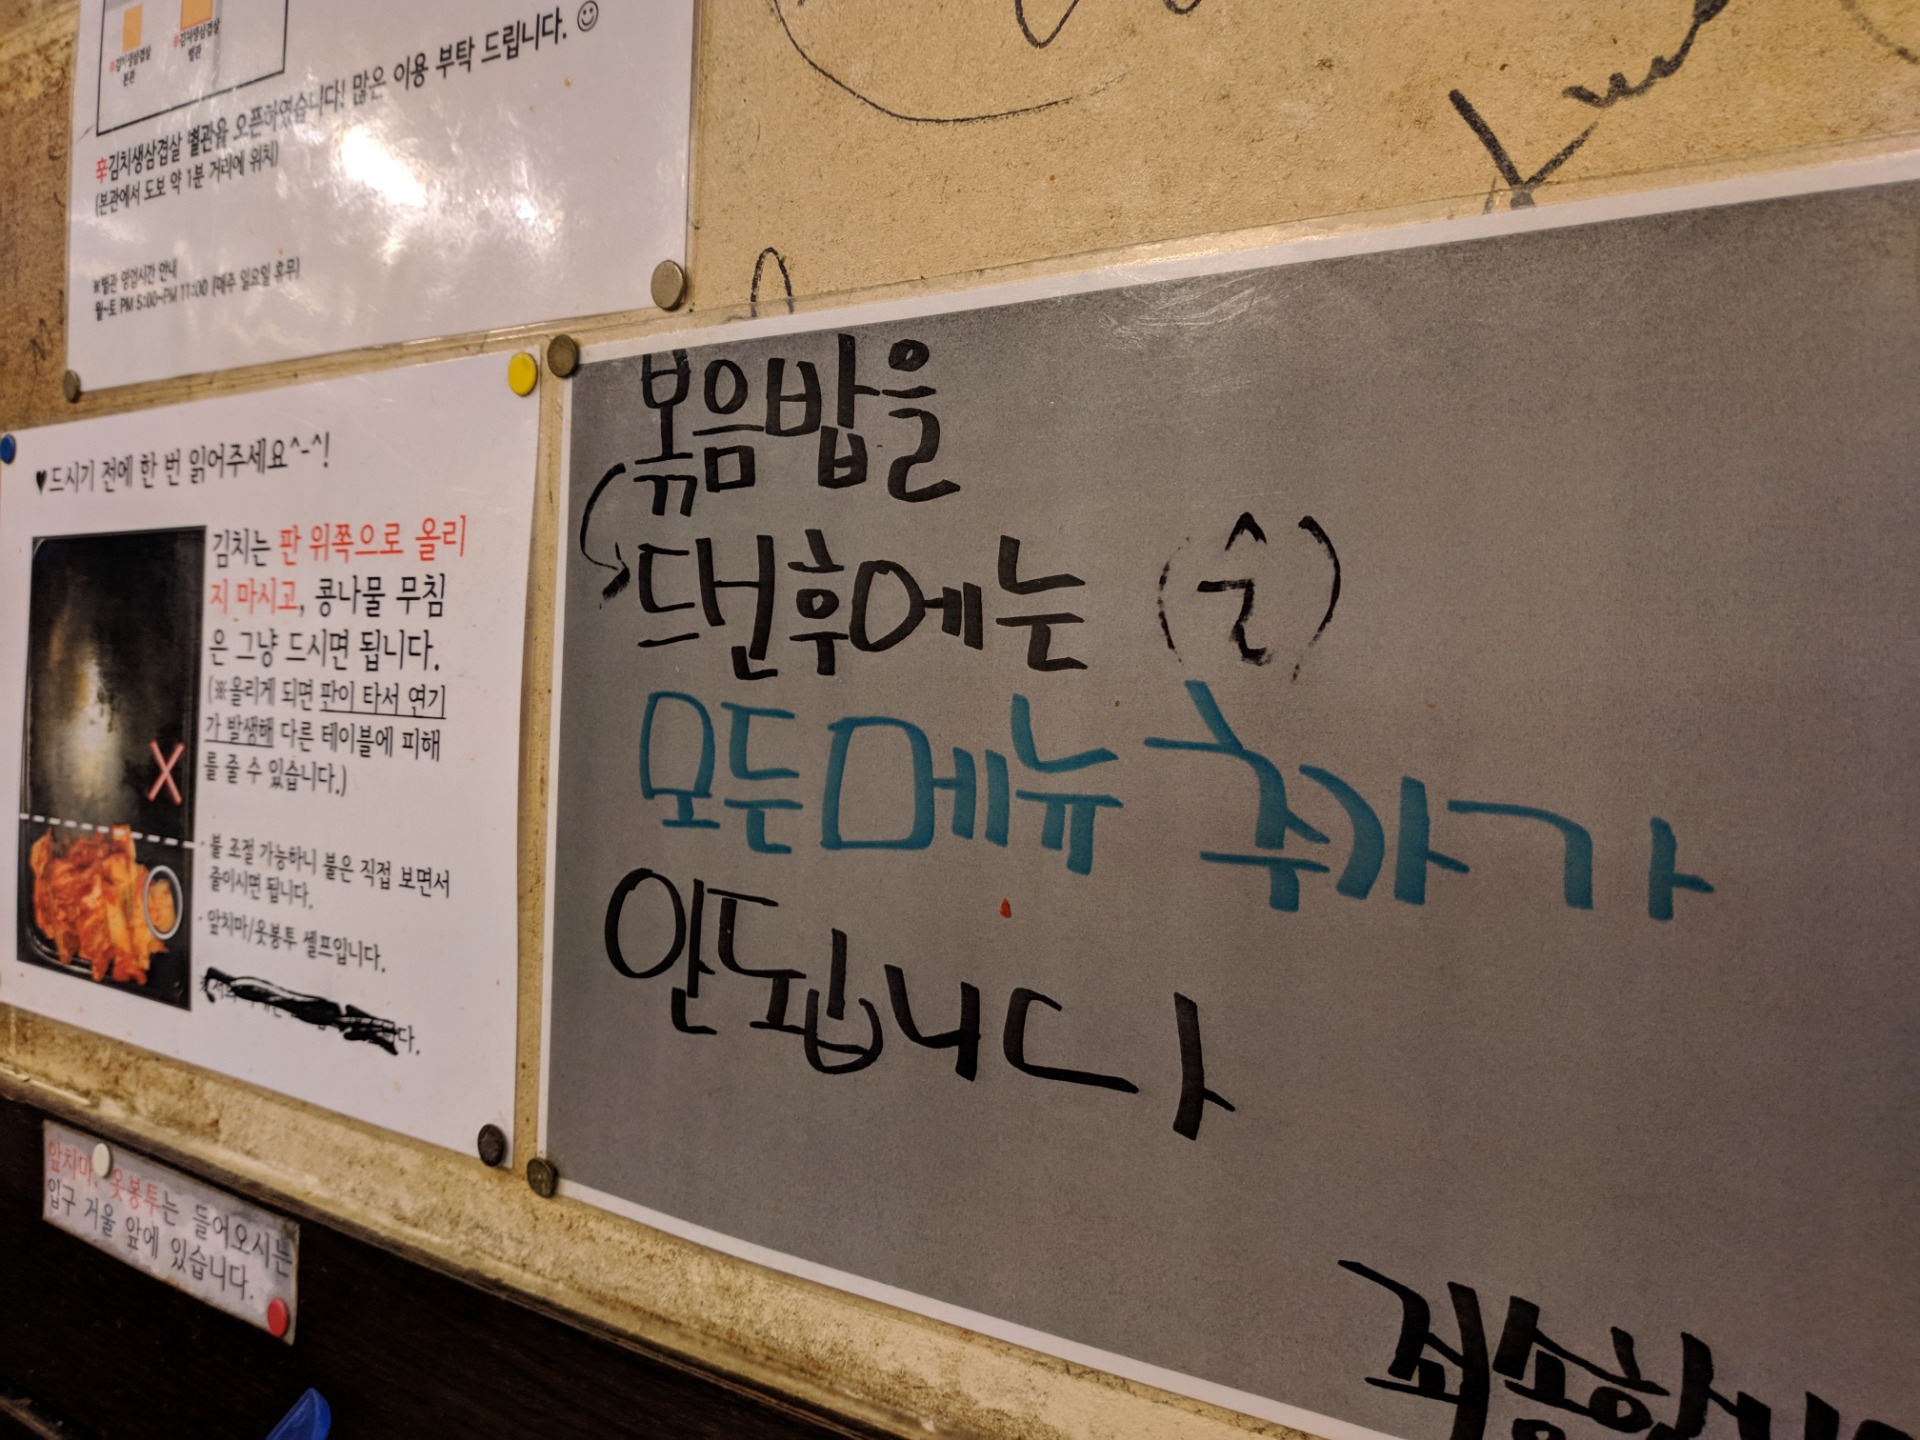 辛김치생삼겹살
본관
辛김치생삼겹살
별관
辛김치생삼겹살 별관을 오픈하였습니다! 많은 이용 부탁 드립니다. ☺
(본관에서 도보 약 1분 거리에 위치)
※별관 영업시간 안내
월~토 PM 5:00~PM 11:00 (매주 일요일 휴무)
♥드시기 전에 한 번 읽어주세요^-^!
김치는 판 위쪽으로 올리
지 마시고, 콩나물 무침
은 그냥 드시면 됩니다.
(※올리게 되면 판이 타서 연기
가 발생해 다른 테이블에 피해
를 줄 수 있습니다.)
- 불 조절 가능하니 불은 직접 보면서
줄이시면 됩니다.
- 앞치마/옷봉투 셀프입니다.
앞치마, 옷봉투는 들어오시는
입구 거울 앞에 있습니다.
볶음밥을
드신후에는
모든메뉴 추가가
안됩니다
죄송합니